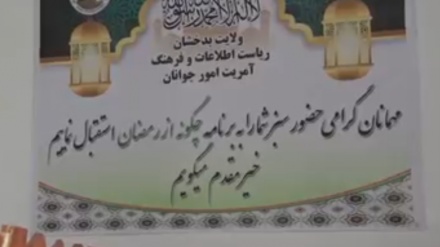 لا اله الا الله محمد رسول الله
ولایت بدخشان
ریاست اطلاعات و فرهنگ
آمریت امور جوانان
مهمانان گرامی حضور سبز شما را به برنامه چگونه از رمضان استقبال نماییم
خیر مقدم میگویم